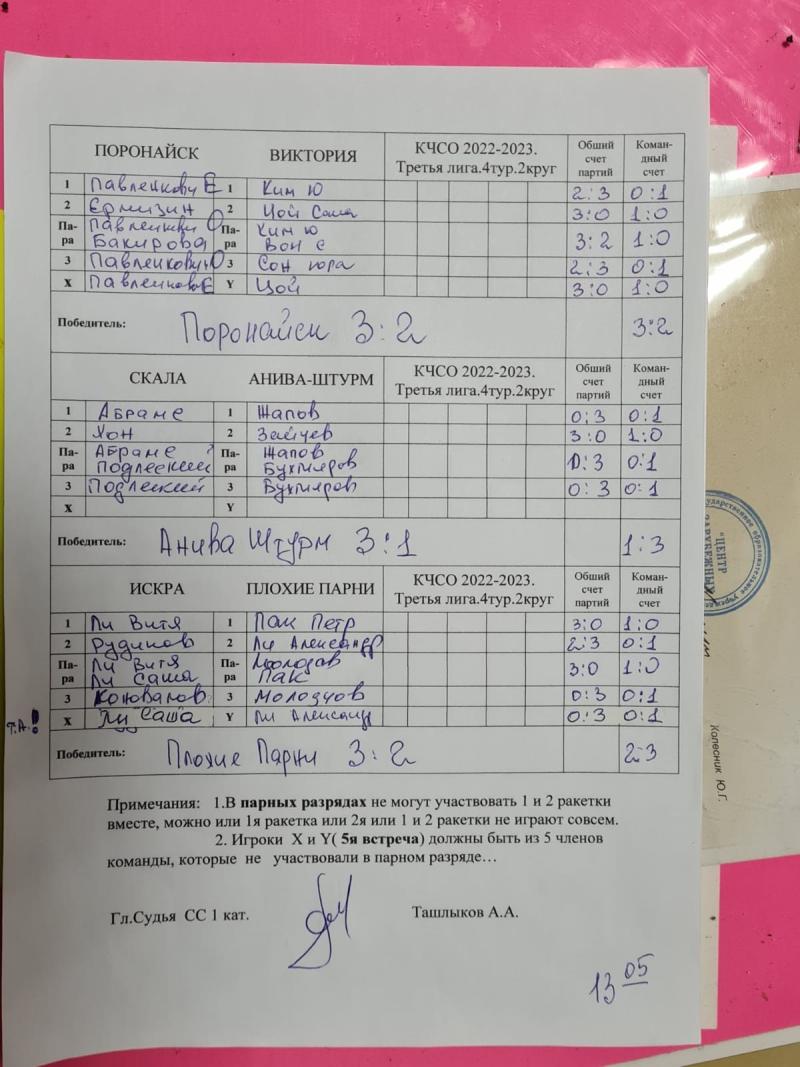 ПОРОНАЙСК ВИКТОРИЯ КЧСО 2022-2023. Третья лига.4тур.2круг Общий счет партий Коман-дный счет
1 Павленкович Е 1 Ким Ю 2:3 0:1
2 Ермизин 2 Цой Саша 3:0 1:0
Па-ра Павленкович О Па-ра Ким Ю 3:2 1:0
Бакирова Вон С
3 Павленкович О 3 Сон Юра 2:3 0:1
X Павленкович Е Y Цой 3:0 1:0
Победитель: Поронайск 3:2 3:2
СКАЛА АНИВА-ШТУРМ КЧСО 2022-2023. Третья лига.4тур.2круг Общий счет партий Коман-дный счет
1 Абраме 1 Жапов 0:3 0:1
2 Хон 2 Зайцев 3:0 1:0
Па-ра Абраме Па-ра Жапов 0:3 0:1
Подлеский Бухтияров
3 Подлеский 3 Бухтияров 0:3 0:1
X Y
Победитель: Анива Штурм 3:1 1:3
ИСКРА ПЛОХИЕ ПАРНИ КЧСО 2022-2023. Третья лига.4тур.2круг Общий счет партий Коман-дный счет
1 Ли Витя 1 Пак Петр 3:0 1:0
2 Рудиков 2 Ли Александр 2:3 0:1
Па-ра Ли Витя Па-ра 3:0 1:0
Ли Саша Пак
3 Коновалов 3 Молодцов 0:3 0:1
т.А.! X Ли Саша Y Ли Александр 0:3 0:1
Победитель: Плохие Парни 3:2 2:3
Примечания: 1.В парных разрядах не могут участвовать 1 и 2 ракетки
вместе, можно или 1я ракетка или 2я или 1 и 2 ракетки не играют совсем.
2. Игроки X и Y( 5я встреча) должны быть из 5 членов
команды, которые не участвовали в парном разряде…
Гл.Судья СС 1 кат. Ташлыков А.А.
13 05
Колесник Ю.Г.
"ЦЕНТР